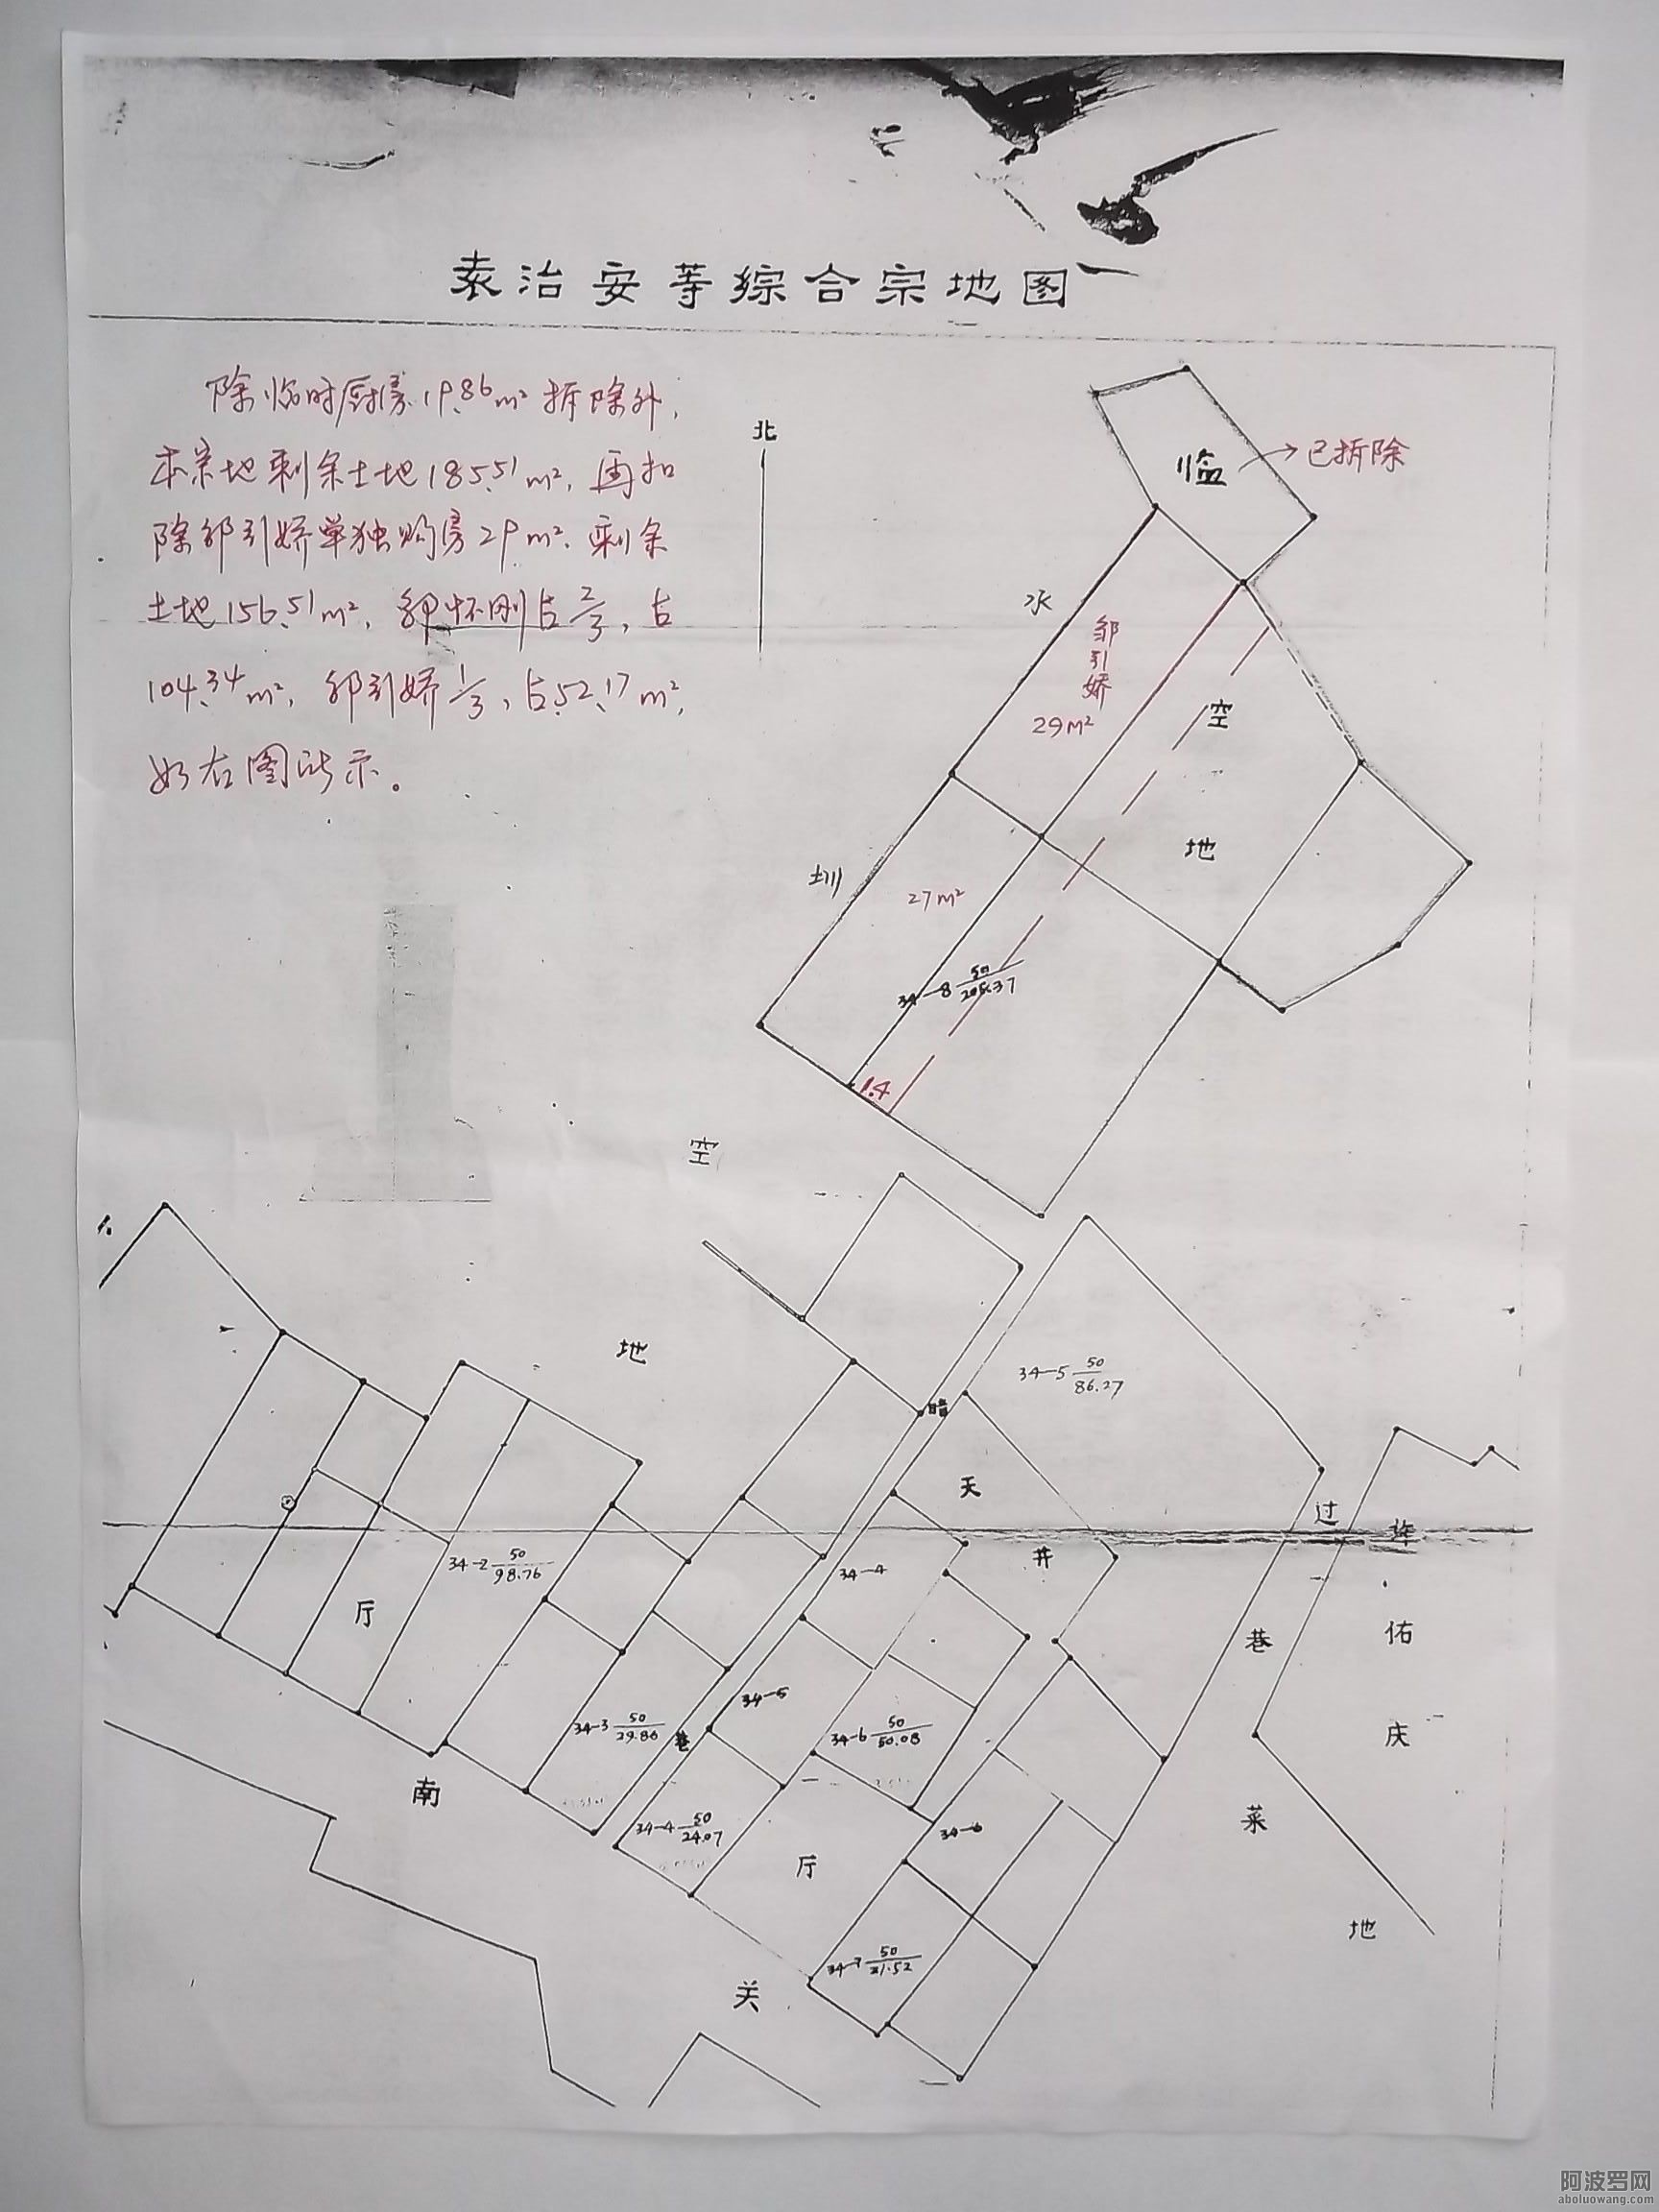 袁治安等综合宗地图
除临时厨房19.86m²拆除外,
本宗地剩余土地185.51m²,再扣
除邹引娇单独购房29m²,剩余
土地156.51m²,邹怀刚占2/3,占
104.34m²,邹引娇1/3,占52.17m²,
如右图所示。
北
临
已拆除
水
邹引娇
29m²
空
地
圳
27m²
34-8 50/205.37
1.4
空
地
34-5 50/86.27
暗
天
井
过
巷
许佑庆
菜
地
34-2 50/98.76
厅
34-4
34-5
34-3 50/29.86
巷
34-6 50/50.08
南
34-4 50/24.07
厅
34-6
34-7 50/21.52
关
阿波罗网
aboluowang.com